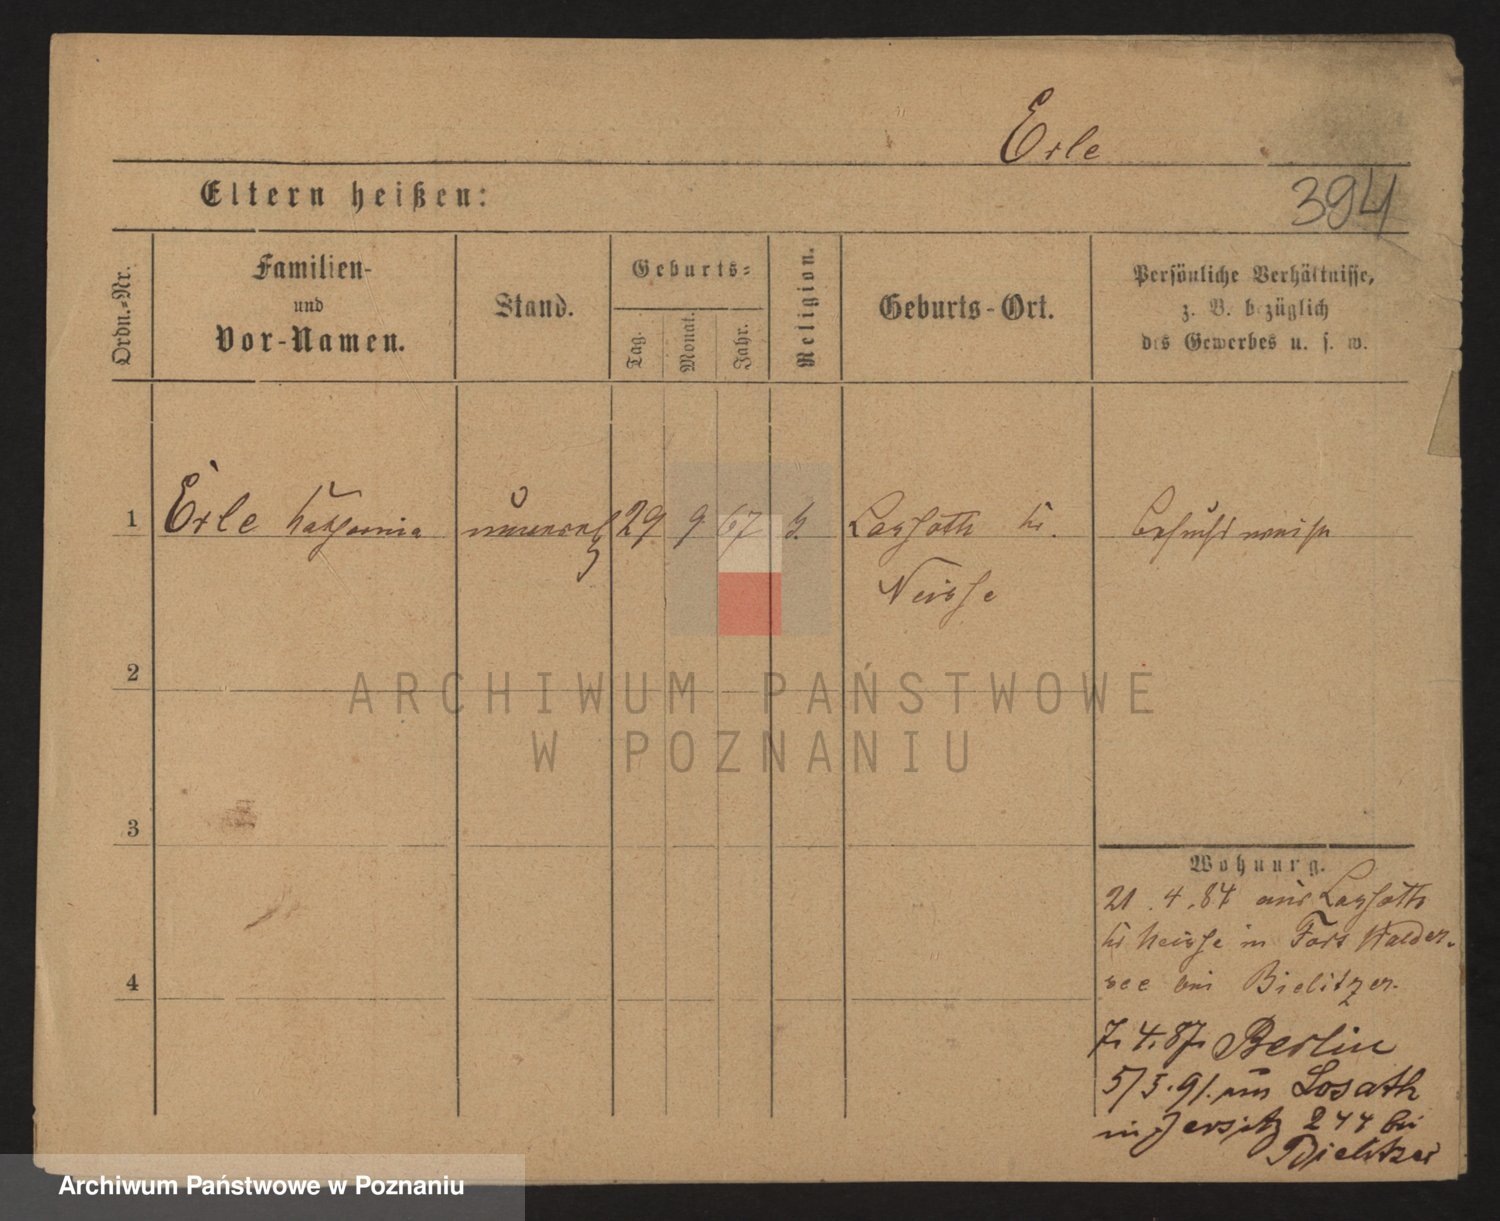 Erle
394
Eltern heißen:
Ordn.-Nr.
Familien-
und
Vor-Namen.
Stand.
Geburts-
Tag.
Monat.
Jahr.
Religion.
Geburts-Ort.
Persönliche Verhältnisse,
z. B. bezüglich
des Gewerbes u. s. w.
1 Erle 29 9 67 Kr.
Neisse
2
ARCHIWUM PAŃSTWOWE
W POZNANIU
3
Wohnung.
21.4.84 aus
Kr Neisse in Fort Walder-
see bei Bielitzer.
4
7.4.87. Berlin
5/5.91. aus Losath
in Jersitz 244 bei
Bielitzer
Archiwum Państwowe w Poznaniu